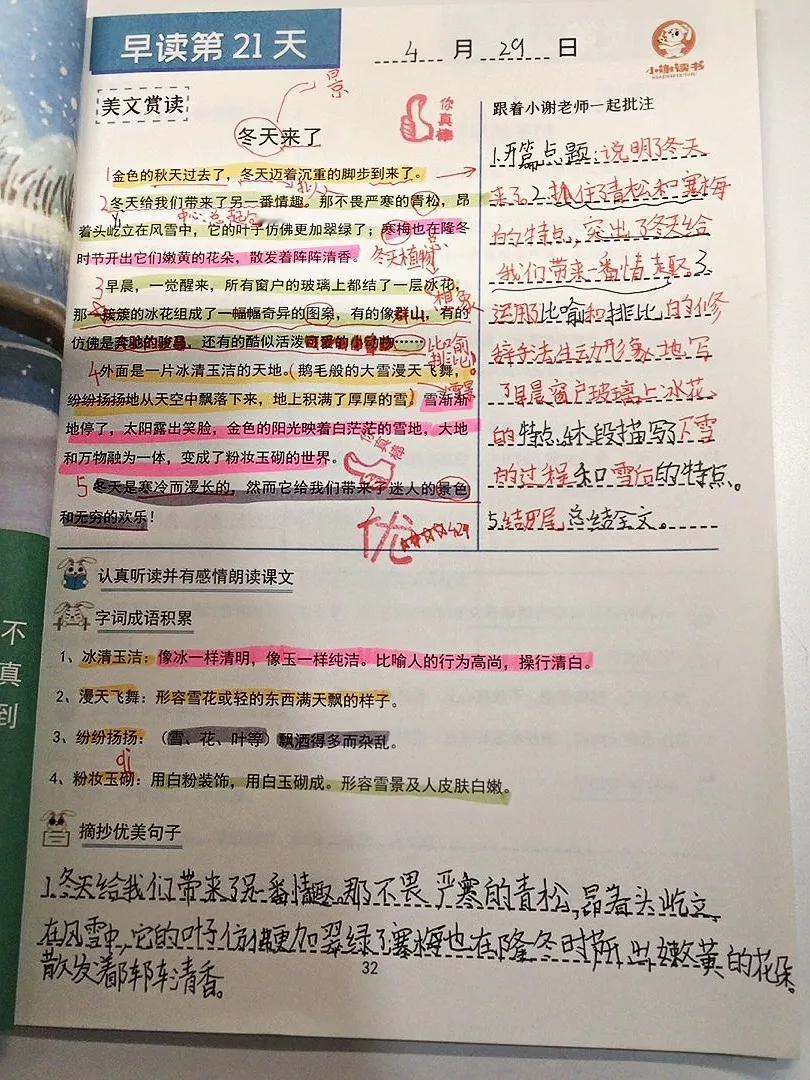 早读第21天
4月29日
小谢读书
美文赏读
景
你真棒
跟着小谢老师一起批注
冬天来了
1金色的秋天过去了，冬天迈着沉重的脚步到来了。
拟人
2冬天给我们带来了另一番情趣。那不畏严寒的青松，昂
中心，总起句
着头屹立在风雪中，它的叶子仿佛更加翠绿了；寒梅也在隆冬
时节开出它们嫩黄的花朵，散发着阵阵清香。
冬天植物
3早晨，一觉醒来，所有窗户的玻璃上都结了一层冰花，
想象
那一簇簇的冰花组成了一幅幅奇异的图案，有的像群山，有的
仿佛是奔驰的骏马，还有的酷似活泼可爱的小动物……
比喻
排比
4外面是一片冰清玉洁的天地。鹅毛般的大雪漫天飞舞，
纷纷扬扬地从天空中飘落下来，地上积满了厚厚的雪。雪渐渐
雪景
地停了，太阳露出笑脸，金色的阳光映着白茫茫的雪地，大地
你真棒
和万物融为一体，变成了粉妆玉砌的世界。
5冬天是寒冷而漫长的，然而它给我们带来了迷人的景色
和无穷的欢乐！
优
4.29
1.开篇点题:说明了冬天
来了。2.抓住了青松和寒梅
的特点，突出了冬天给
我们带来一番情趣。3.
运用比喻和排比的修
辞手法生动形象地写
了早晨窗户玻璃上冰花
的特点。4.本段描写下雪
的过程和雪后的特点。
5.结尾总结全文。
认真听读并有感情朗读课文
字词成语积累
1、冰清玉洁：像冰一样清明，像玉一样纯洁。比喻人的行为高尚，操行清白。
2、漫天飞舞：形容雪花或轻的东西满天飘的样子。
3、纷纷扬扬：（雪、花、叶等）飘洒得多而杂乱。
qì
4、粉妆玉砌：用白粉装饰，用白玉砌成。形容雪景及人皮肤白嫩。
摘抄优美句子
1.冬天给我们带来了另一番情趣。那不畏严寒的青松，昂着头屹立
在风雪中，它的叶子仿佛更加翠绿了寒梅也在隆冬时节开出嫩黄的花朵。
散发着阵阵清香。
32
不
真
到